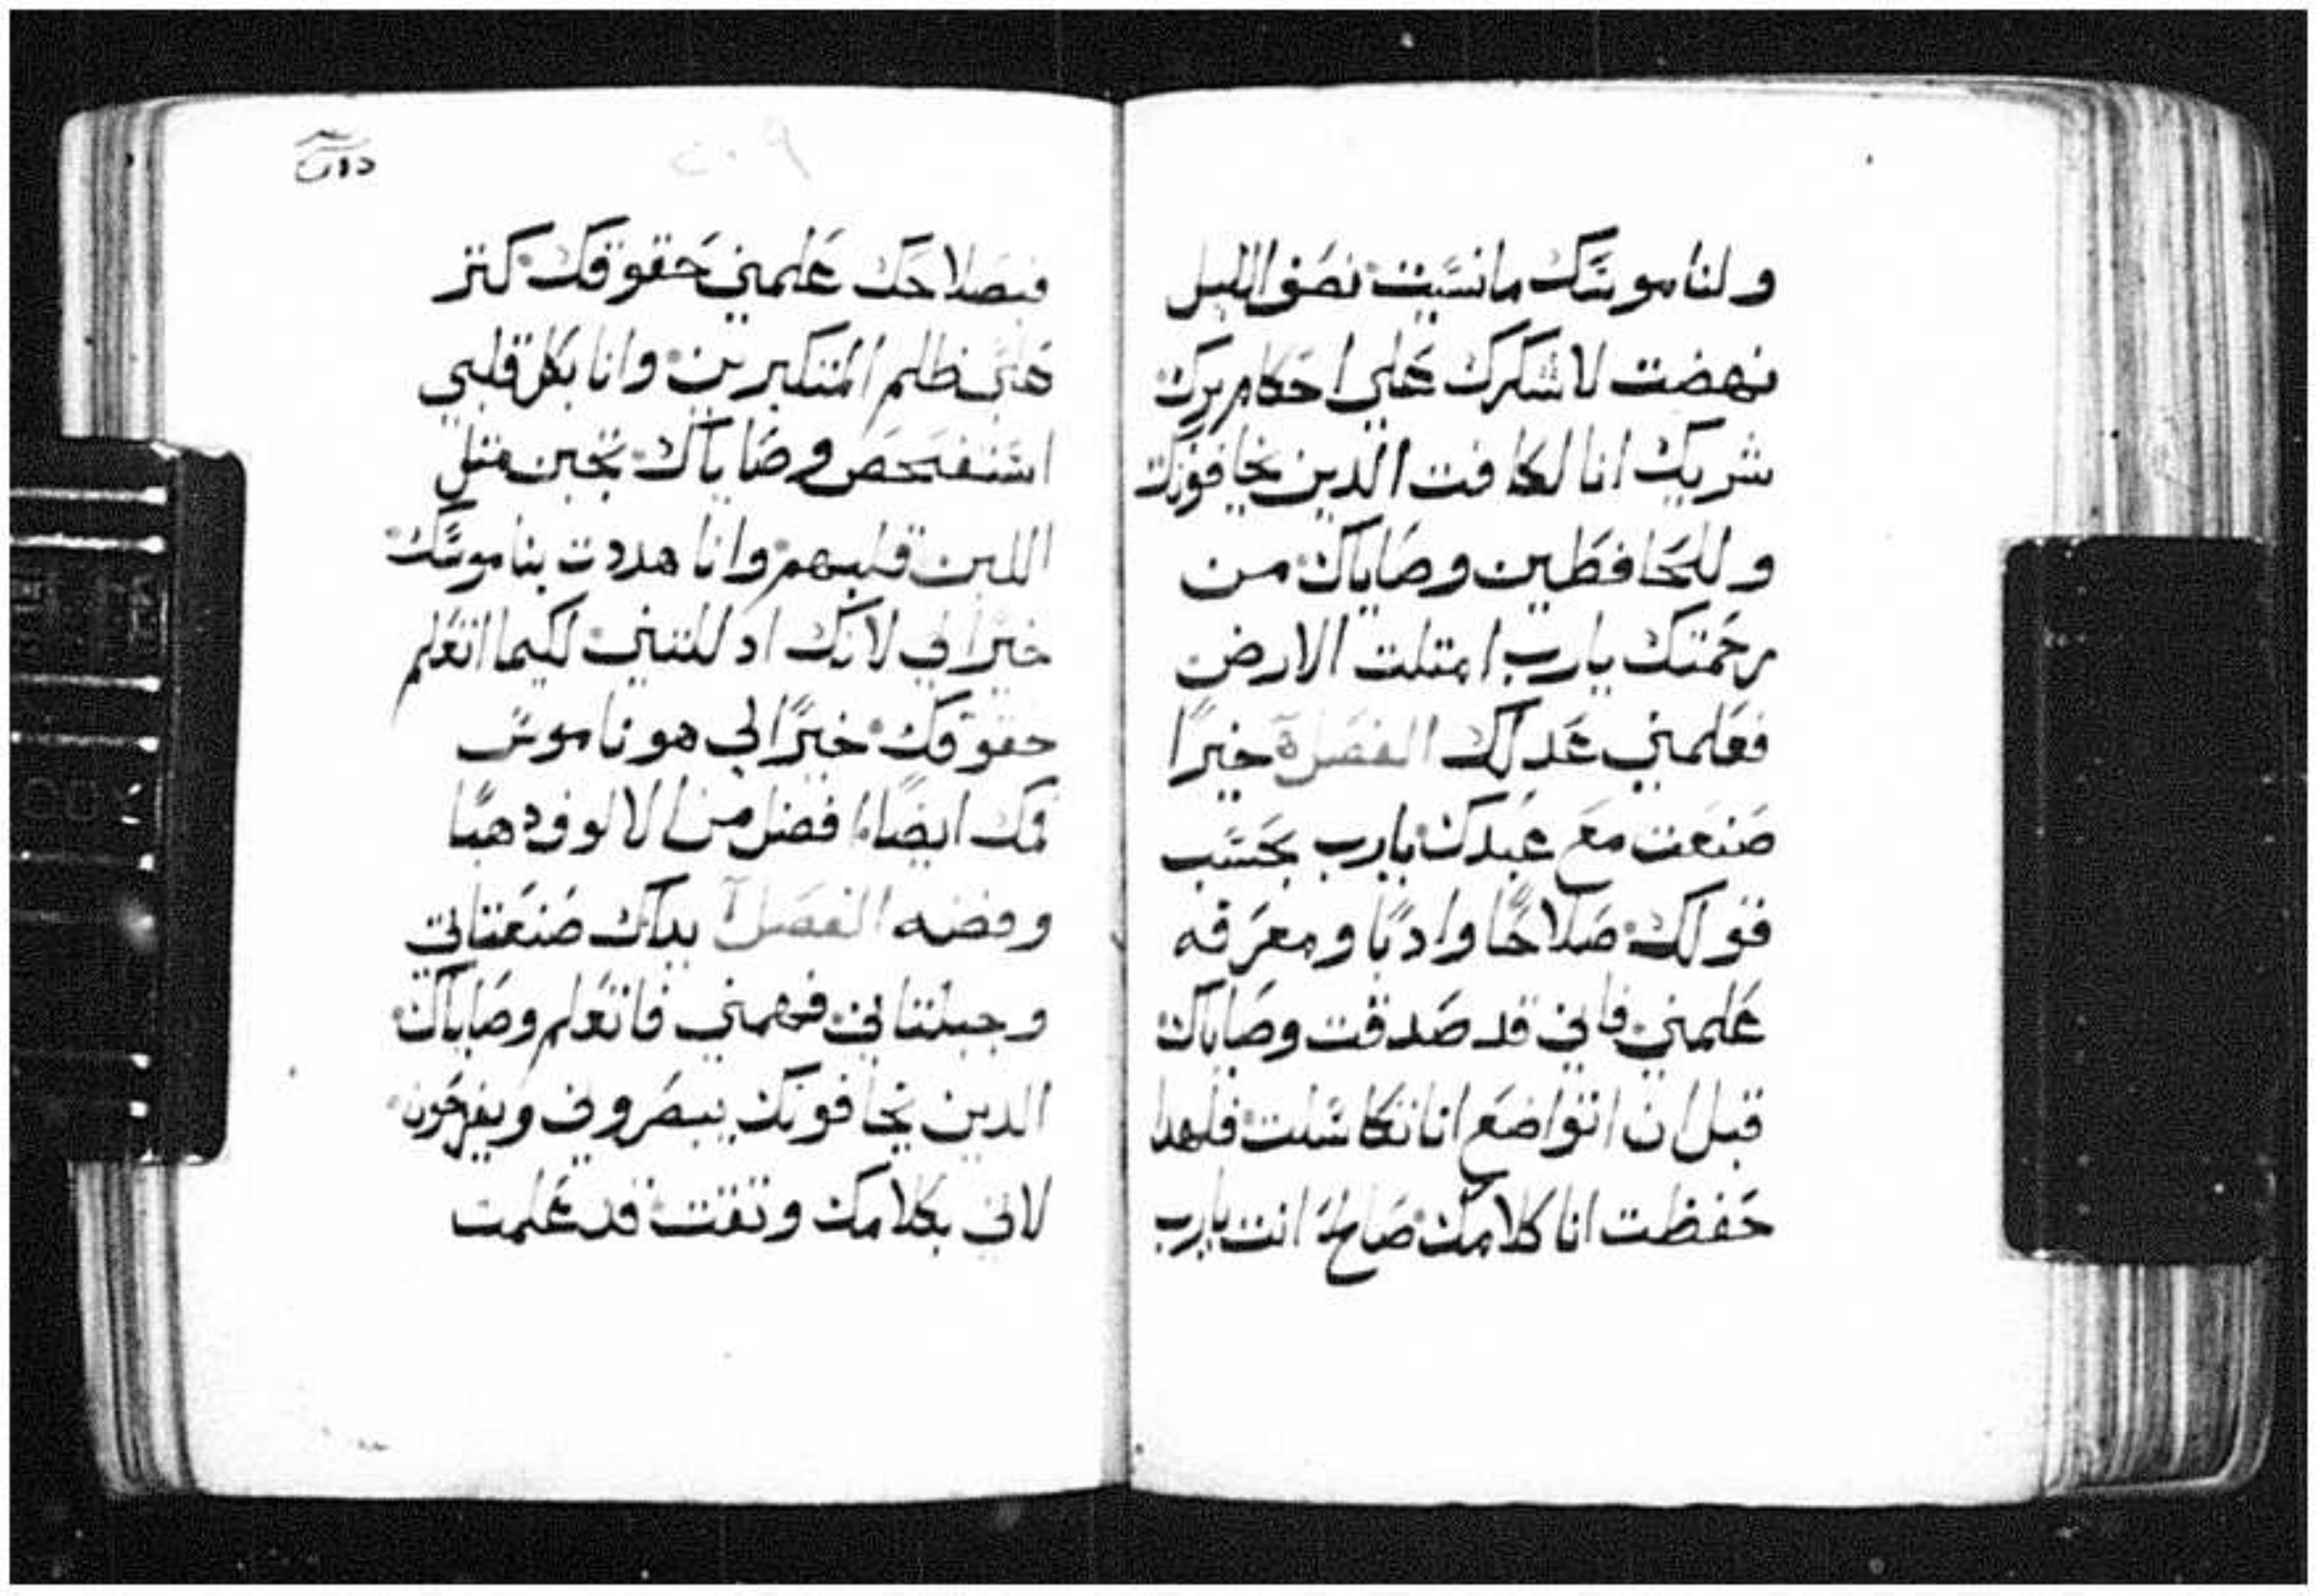 ولناموسك مانسيت نصف الليل
نهضت لاشكرك على احكام برك
شريك انا لكافت الدين يخافونك
وللحافظين وصاياك من
رحمتك يارب امتلت الارض
فعلمني عدلك الفصل خيرًا
صنعت مع عبدك يارب بحسب
قولك صلاحًا وادبًا ومعرفه
علمني فاني قد صدقت وصاياك
قبل ان اتواضع انا تكاسلت فلهدا
حفظت انا كلامك صالح انت يارب
٢٠٩
فبصلاحك علمني حقوقك كتر
على ظلم المتكبرين وانا بكل قلبي
استفحص وصاياك تجبن متل
اللبن قلبهم وانا هددت بناموسك
خيرًا لي لانك ادللتني لكيما اتعلم
حقوقك خيرًا لي هو ناموس
فمك ايضًا افضل من الالوف دهبًا
وفضه الفصل يداك صنعتاني
وجبلتاني فهمني فاتعلم وصاياك
الدين يخافونك يبصروني ويفرحون
لاني بكلامك وتقت قد علمت